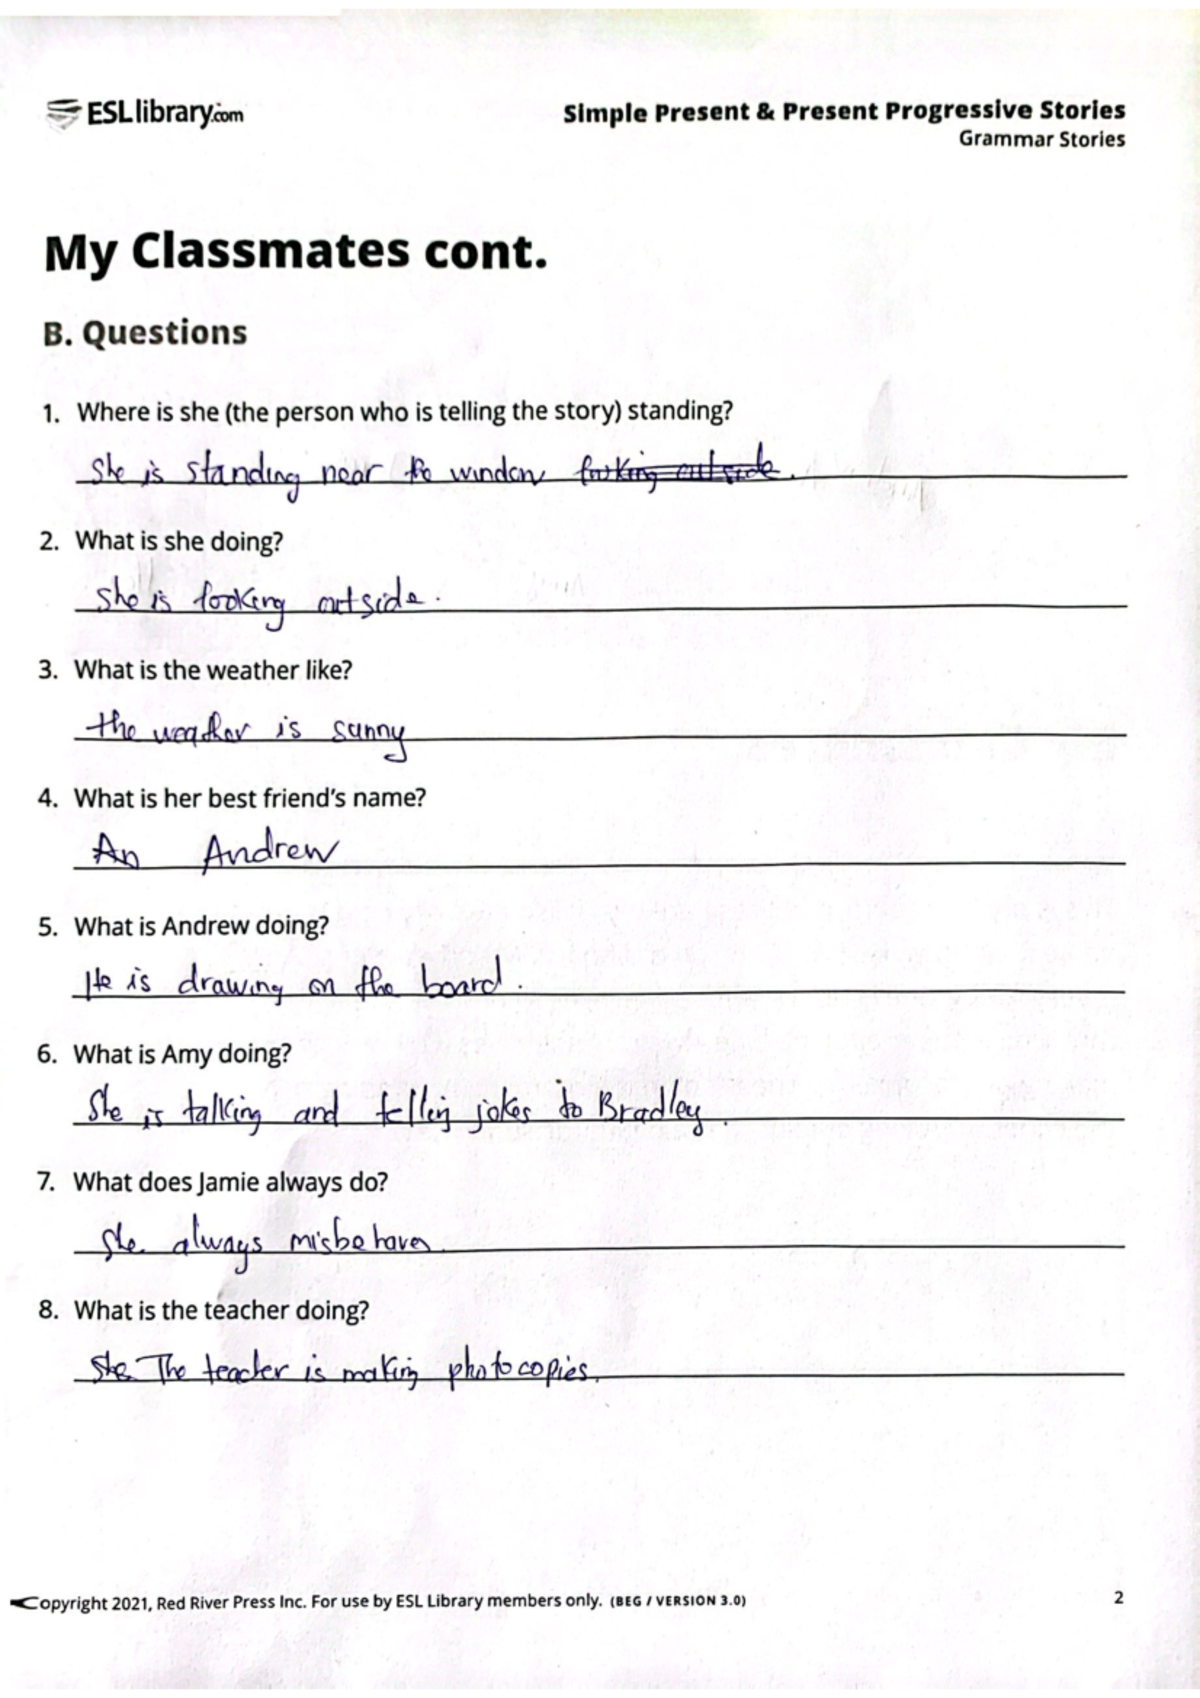 ESLlibrary.com
Simple Present & Present Progressive Stories
Grammar Stories
My Classmates cont.
B. Questions
1. Where is she (the person who is telling the story) standing?
She is standing near the window looking outside.
2. What is she doing?
She is looking outside.
3. What is the weather like?
the weather is sunny
4. What is her best friend's name?
An Andrew
5. What is Andrew doing?
He is drawing on the board.
6. What is Amy doing?
She is talking and telling jokes to Bradley.
7. What does Jamie always do?
She always misbehaves.
8. What is the teacher doing?
She The teacher is making photocopies.
Copyright 2021, Red River Press Inc. For use by ESL Library members only. (BEG / VERSION 3.0)
2